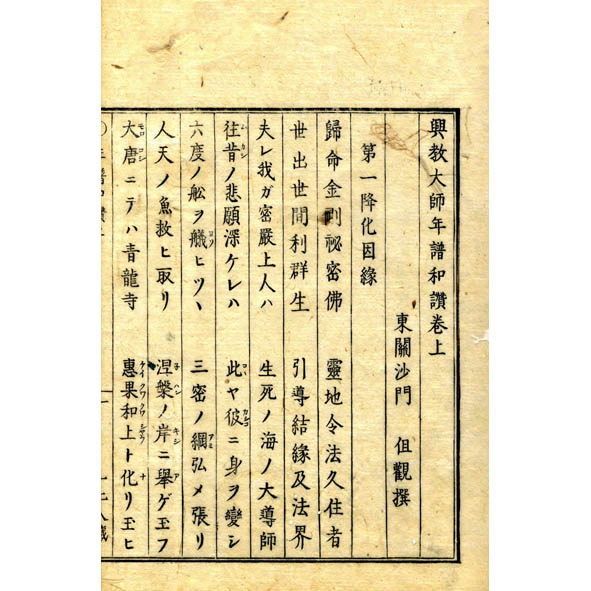 興教大師年譜和讃卷上
東關沙門 但觀撰
第一降化因緣
歸命金剛祕密佛 靈地令法久住者
世出世間利群生 引導結緣及法界
夫レ我ガ密嚴上人ハ 生死ノ海ノ大導師
往昔ノ悲願深ケレハ 此ヤ彼ニ身ヲ變シ
六度ノ舩ヲ艤ヒツヽ 三密ノ綱弘メ張リ
人天ノ魚救ヒ取リ 涅槃ノ岸ニ舉ゲ玉フ
大唐ニテハ青龍寺 惠果和上ト化リ玉ヒ